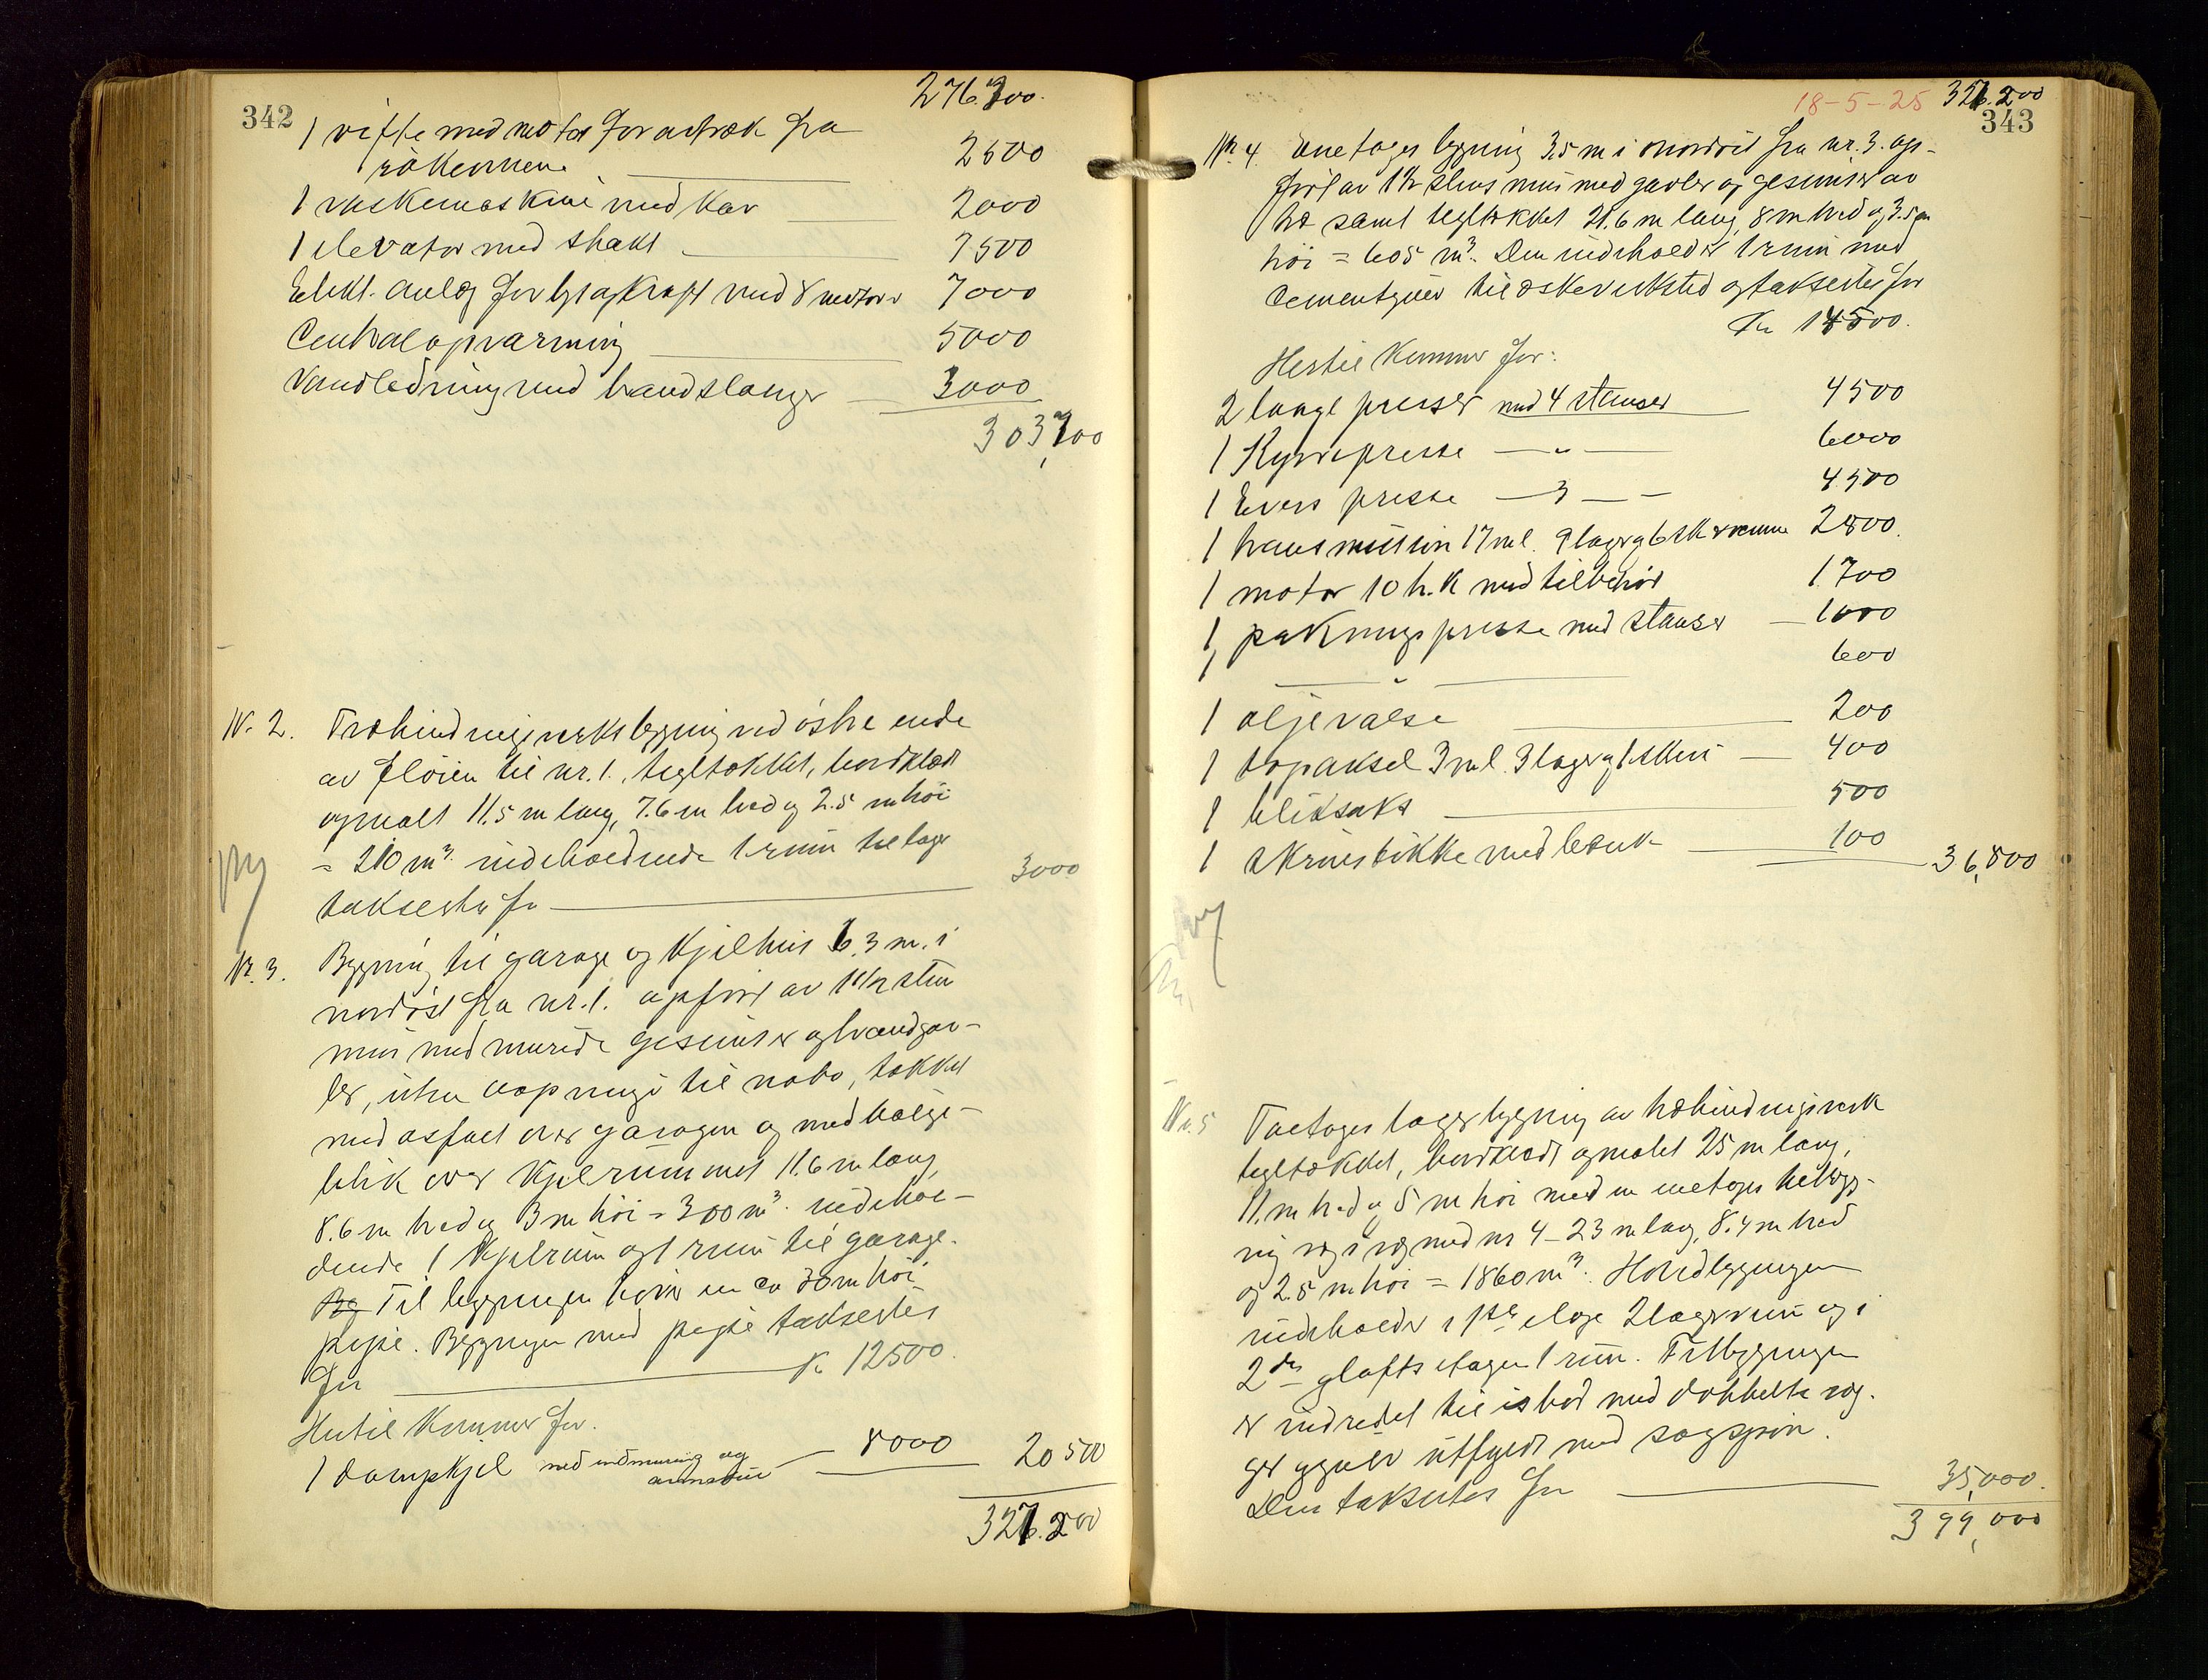 342
276.700.
1 vifte med motor for avtræk fra
rökovnene 2500
1 vaskemaskine med kar 2000
1 elevator med shakt 7500
Elekt. anlæg for lys og kraft med 8 motorer 7000
Centralopvarming 5000
Vandledning med brandslanger 3000
303,700
Nr. 2. Træbindingsverksbygning ved östre ende
av flöien til nr. 1., tegltækket, bordklædt
og malt 11.5 m lang, 7.6 m bred og 2.5 m höi
= 210 m³. indeholdende 1 rum til lager
taksertes for 3000
Nr. 3. Bygning til garage og kjelhus 6.3 m. i
nordöst fra nr. 1. opfört av 1 1/2 sten
mur med murede gesimser og brandgav-
ler, uten aapninge til nabo, tækket
med asfalt over garagen og med bölge-
blik over kjelrummet 11.6 m lang,
8.6 m bred og 3 m höi = 300 m³. indehol-
dende 1 kjelrum og 1 rum til garage.
Til bygningen hörer en ca 30 m höi
pipe. Bygningen med pipe taksertes
for Kr 12500.
Hertil kommer for.
1 dampkjel med indmuring og
armatur 8000 20500
327.200
18-5-25 327.200
343
Nr. 4. Enetages bygning 3.5 m i nordöst fra nr. 3. op-
fört av 1 1/2 stens mur med gavler og gesimser av
træ samt tegltækket 21.6 m lang, 8 m bred og 3.5 m
höi = 605 m³. Den indeholder 1 rum med
cementgulv til æskeverksted og taksertes for
Kr 14500.
Hertil kommer for:
2 lange presser med 4 stanser 4500
1 presse — " — 6000
1 Evers presse — 3 — — 4500
1 transmission 17 m l. 9 lager og 6 sk. 2800.
1 motor 10 h.k med tilbehör 1700
1 pakningspresse med stanser 1000
1 — — 600
1 oljevalse 200
1 topaksel 3 m l. 3 lager og 6 skiver 400
1 bliksaks 500
1 skruestikke med bænk 100 36,800
Nr. 5 Toetages lagerbygning av træbindingsverk
tegltækket, bordklædt og malet 25 m lang,
11. m bred og 5 m höi med en enetages tilbyg-
ning og i med nr 4 - 23 m lang, 8.4 m bred
og 2.5 m höi = 1860 m³. Hovedbygningen
indeholder i 1ste etage 2 lagerrum og i
2den og loftsetagen 1 rum. Tilbygningen
er indredet til isbod med dobbelte væg-
ger og gulv utfyldt med sagspon.
Den taksertes for 35,000.
399,000